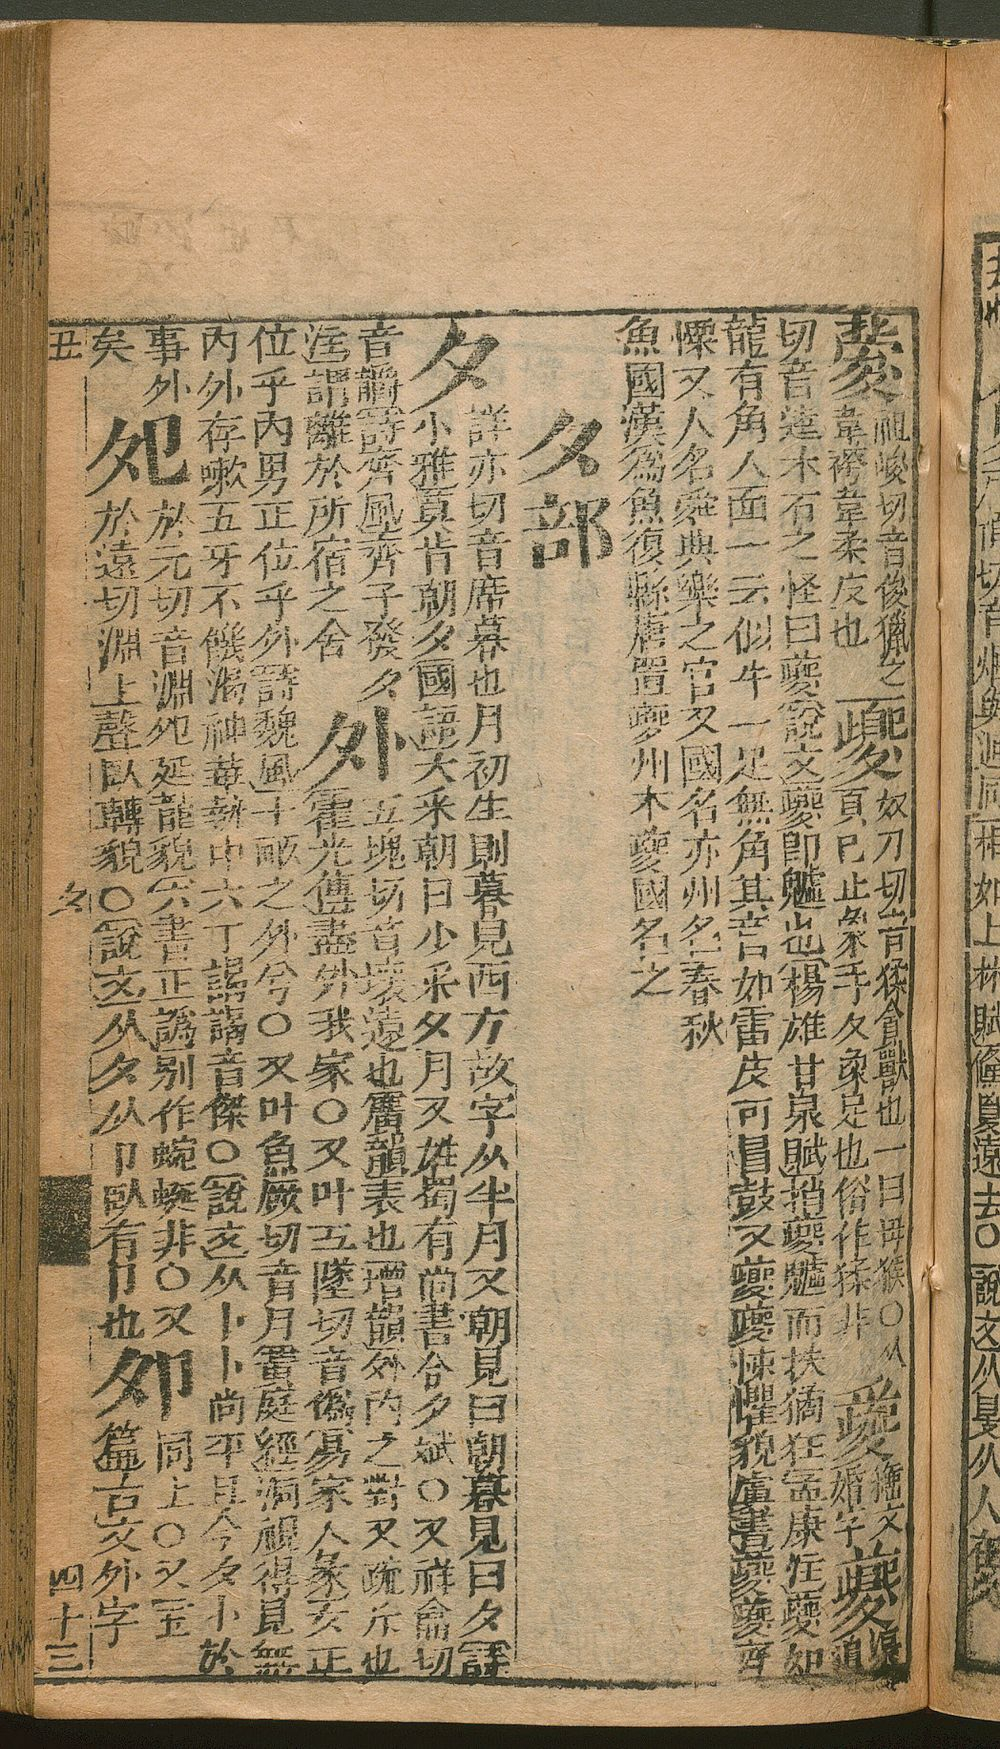 祖峻切音俊獵之韋袴韋柔皮也
奴刀切音猱貪獸也一曰母猴〇从頁巳止象手夊象足也俗作猱非
籀文婚字
夔
切音逵木石之怪曰夔說文夔即魖也楊雄甘泉賦捎夔魖而抶獝狂孟康注夔如
龍有角人面一云似牛一足無角其音如雷皮可冒鼓又夔夔悚懼貌虞書夔夔齊
慄又人名舜典樂之官又國名亦州名春秋
魚國漢為魚復縣唐置夔州木夔國名之
夕部
夕
詳亦切音席暮也月初生則暮見西方故字从半月又朝見曰朝暮見曰夕詩
小雅莫肯朝夕國語大采朝日少采夕月又姓蜀有尚書令夕斌〇又祥龠切
音嚼詩齊風齊子發夕
注謂離於所宿之舍
外
五塊切音壞遠也舊韻表也增韻外內之對又疏斥也
霍光傳盡外我家〇又叶五墜切音偽易家人彖女正
位乎內男正位乎外詩魏風十畝之外兮〇又叶魚厥切音月黃庭經洞視得見無
內外存嗽五牙不饑渴神華執巾六丁謁謁音傑〇說文从卜卜尚平旦今夕卜於
事外
矣
夗
於元切音淵夗延龍貌六書正譌別作蜿蜒非〇又
於遠切淵上聲臥轉貌〇說文从夕从卩臥有卩也
夘
同上〇又玉
篇古文外字
丑
夕
四十三